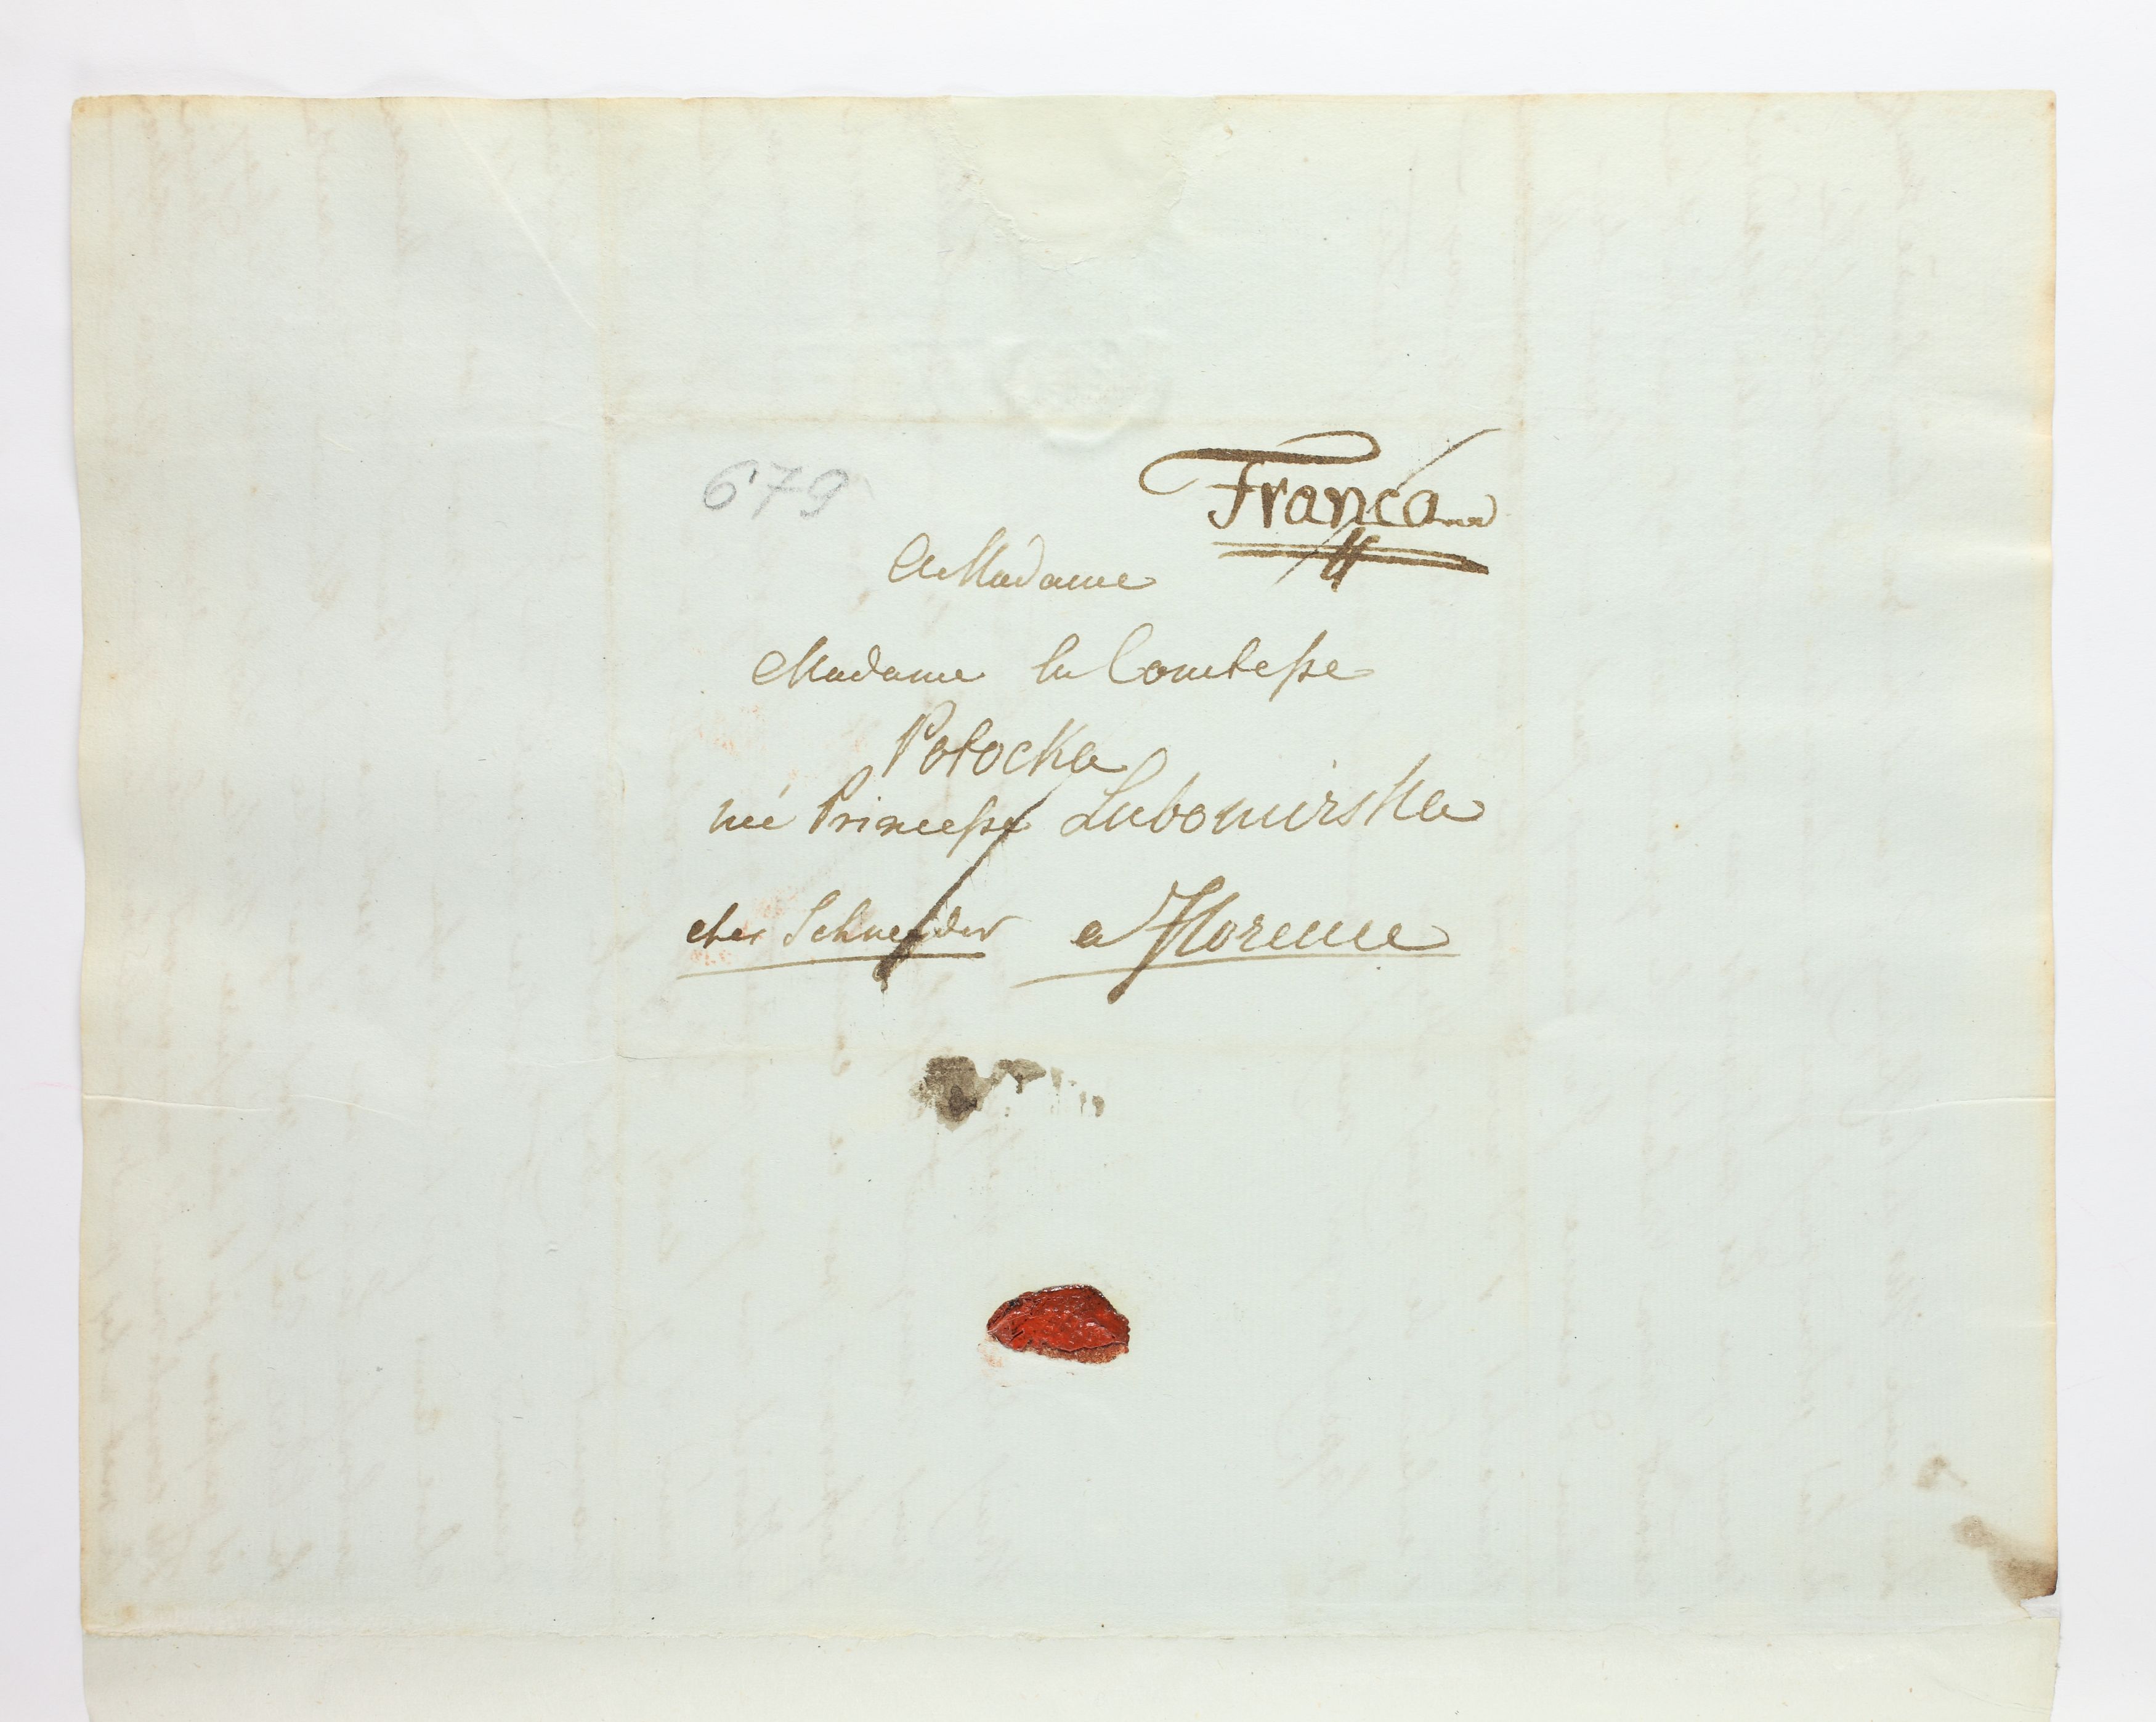 679
Franca
A Madame
Madame la Comtesse
Potocka
née Princesse Lubomirska
chez Schneider a Florence